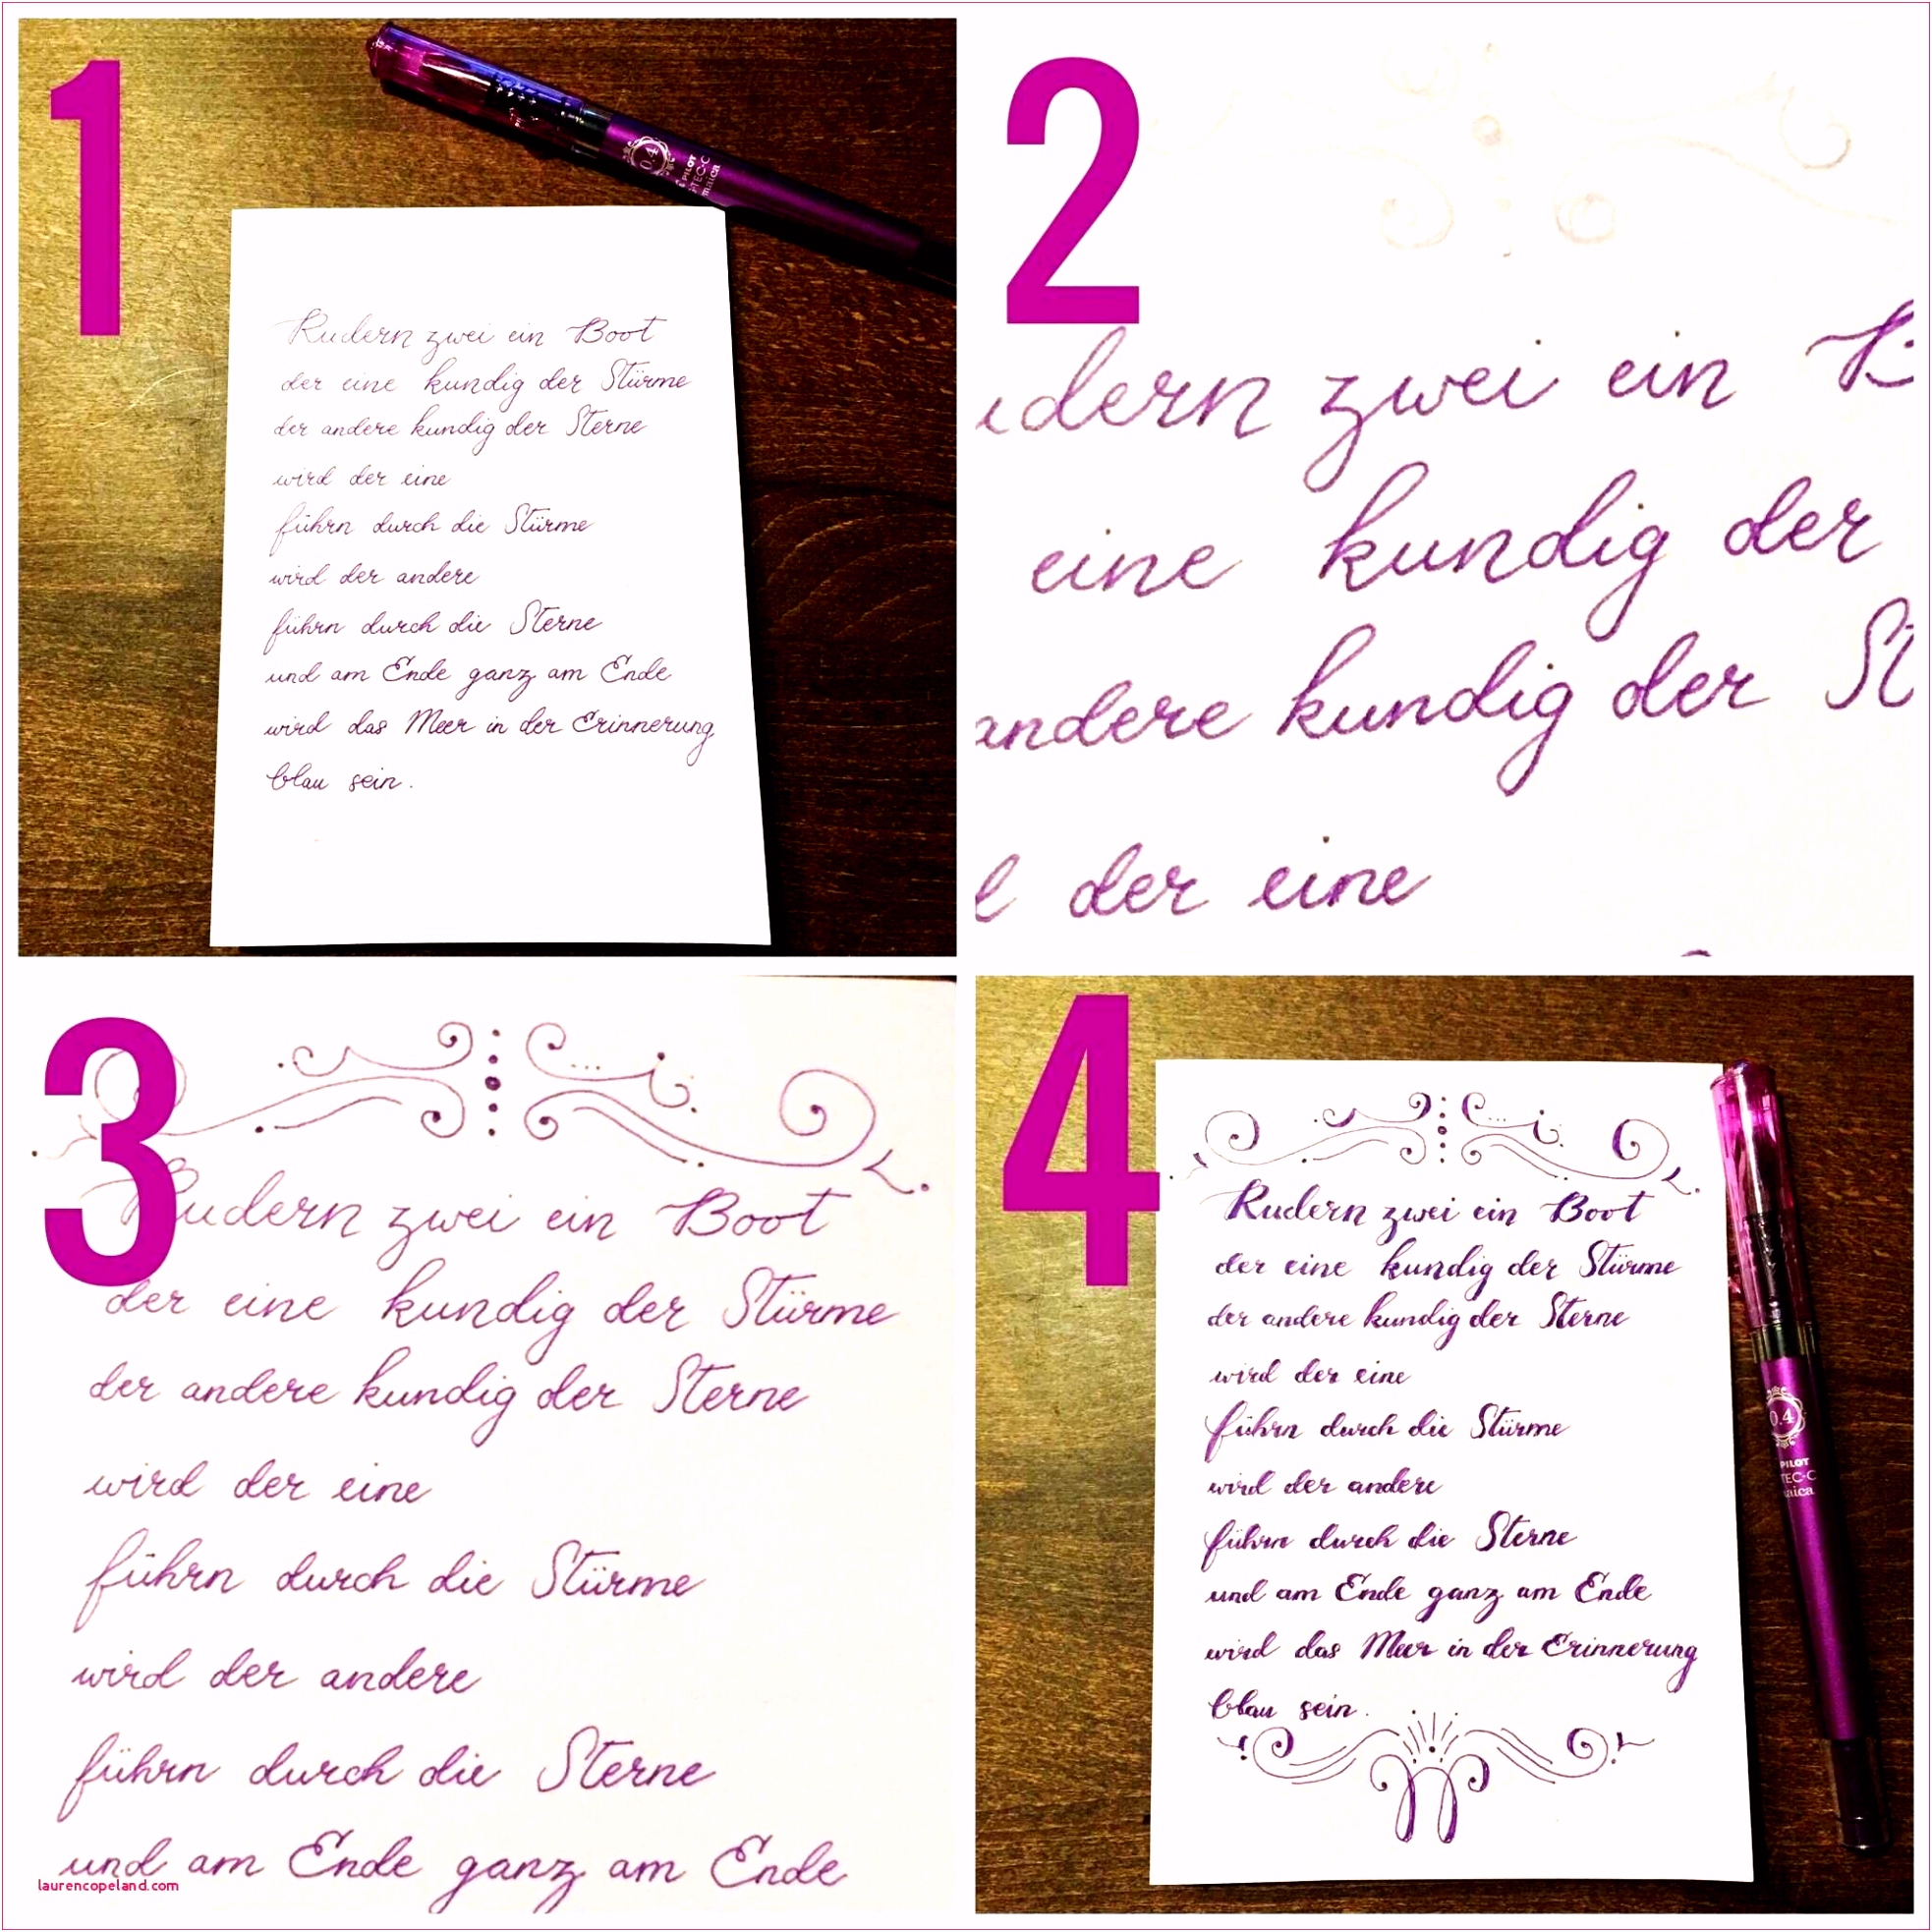 1
0.4
PILOT
TEC-C
maica
Rudern zwei ein Boot
der eine kundig der Stürme
der andere kundig der Sterne
wird der eine
führn durch die Stürme
wird der andere
führn durch die Sterne
und am Ende ganz am Ende
wird das Meer in der Erinnerung
blau sein.
2
dern zwei ein
eine kundig der
andere kundig der St
der eine
3
Rudern zwei ein Boot
der eine kundig der Stürme
der andere kundig der Sterne
wird der eine
führn durch die Stürme
wird der andere
führn durch die Sterne
und am Ende ganz am Ende
laurencopeland.com
4
Rudern zwei ein Boot
der eine kundig der Stürme
der andere kundig der Sterne
wird der eine
führn durch die Stürme
wird der andere
führn durch die Sterne
und am Ende ganz am Ende
wird das Meer in der Erinnerung
blau sein.
0.4
PILOT
TEC-C
aica